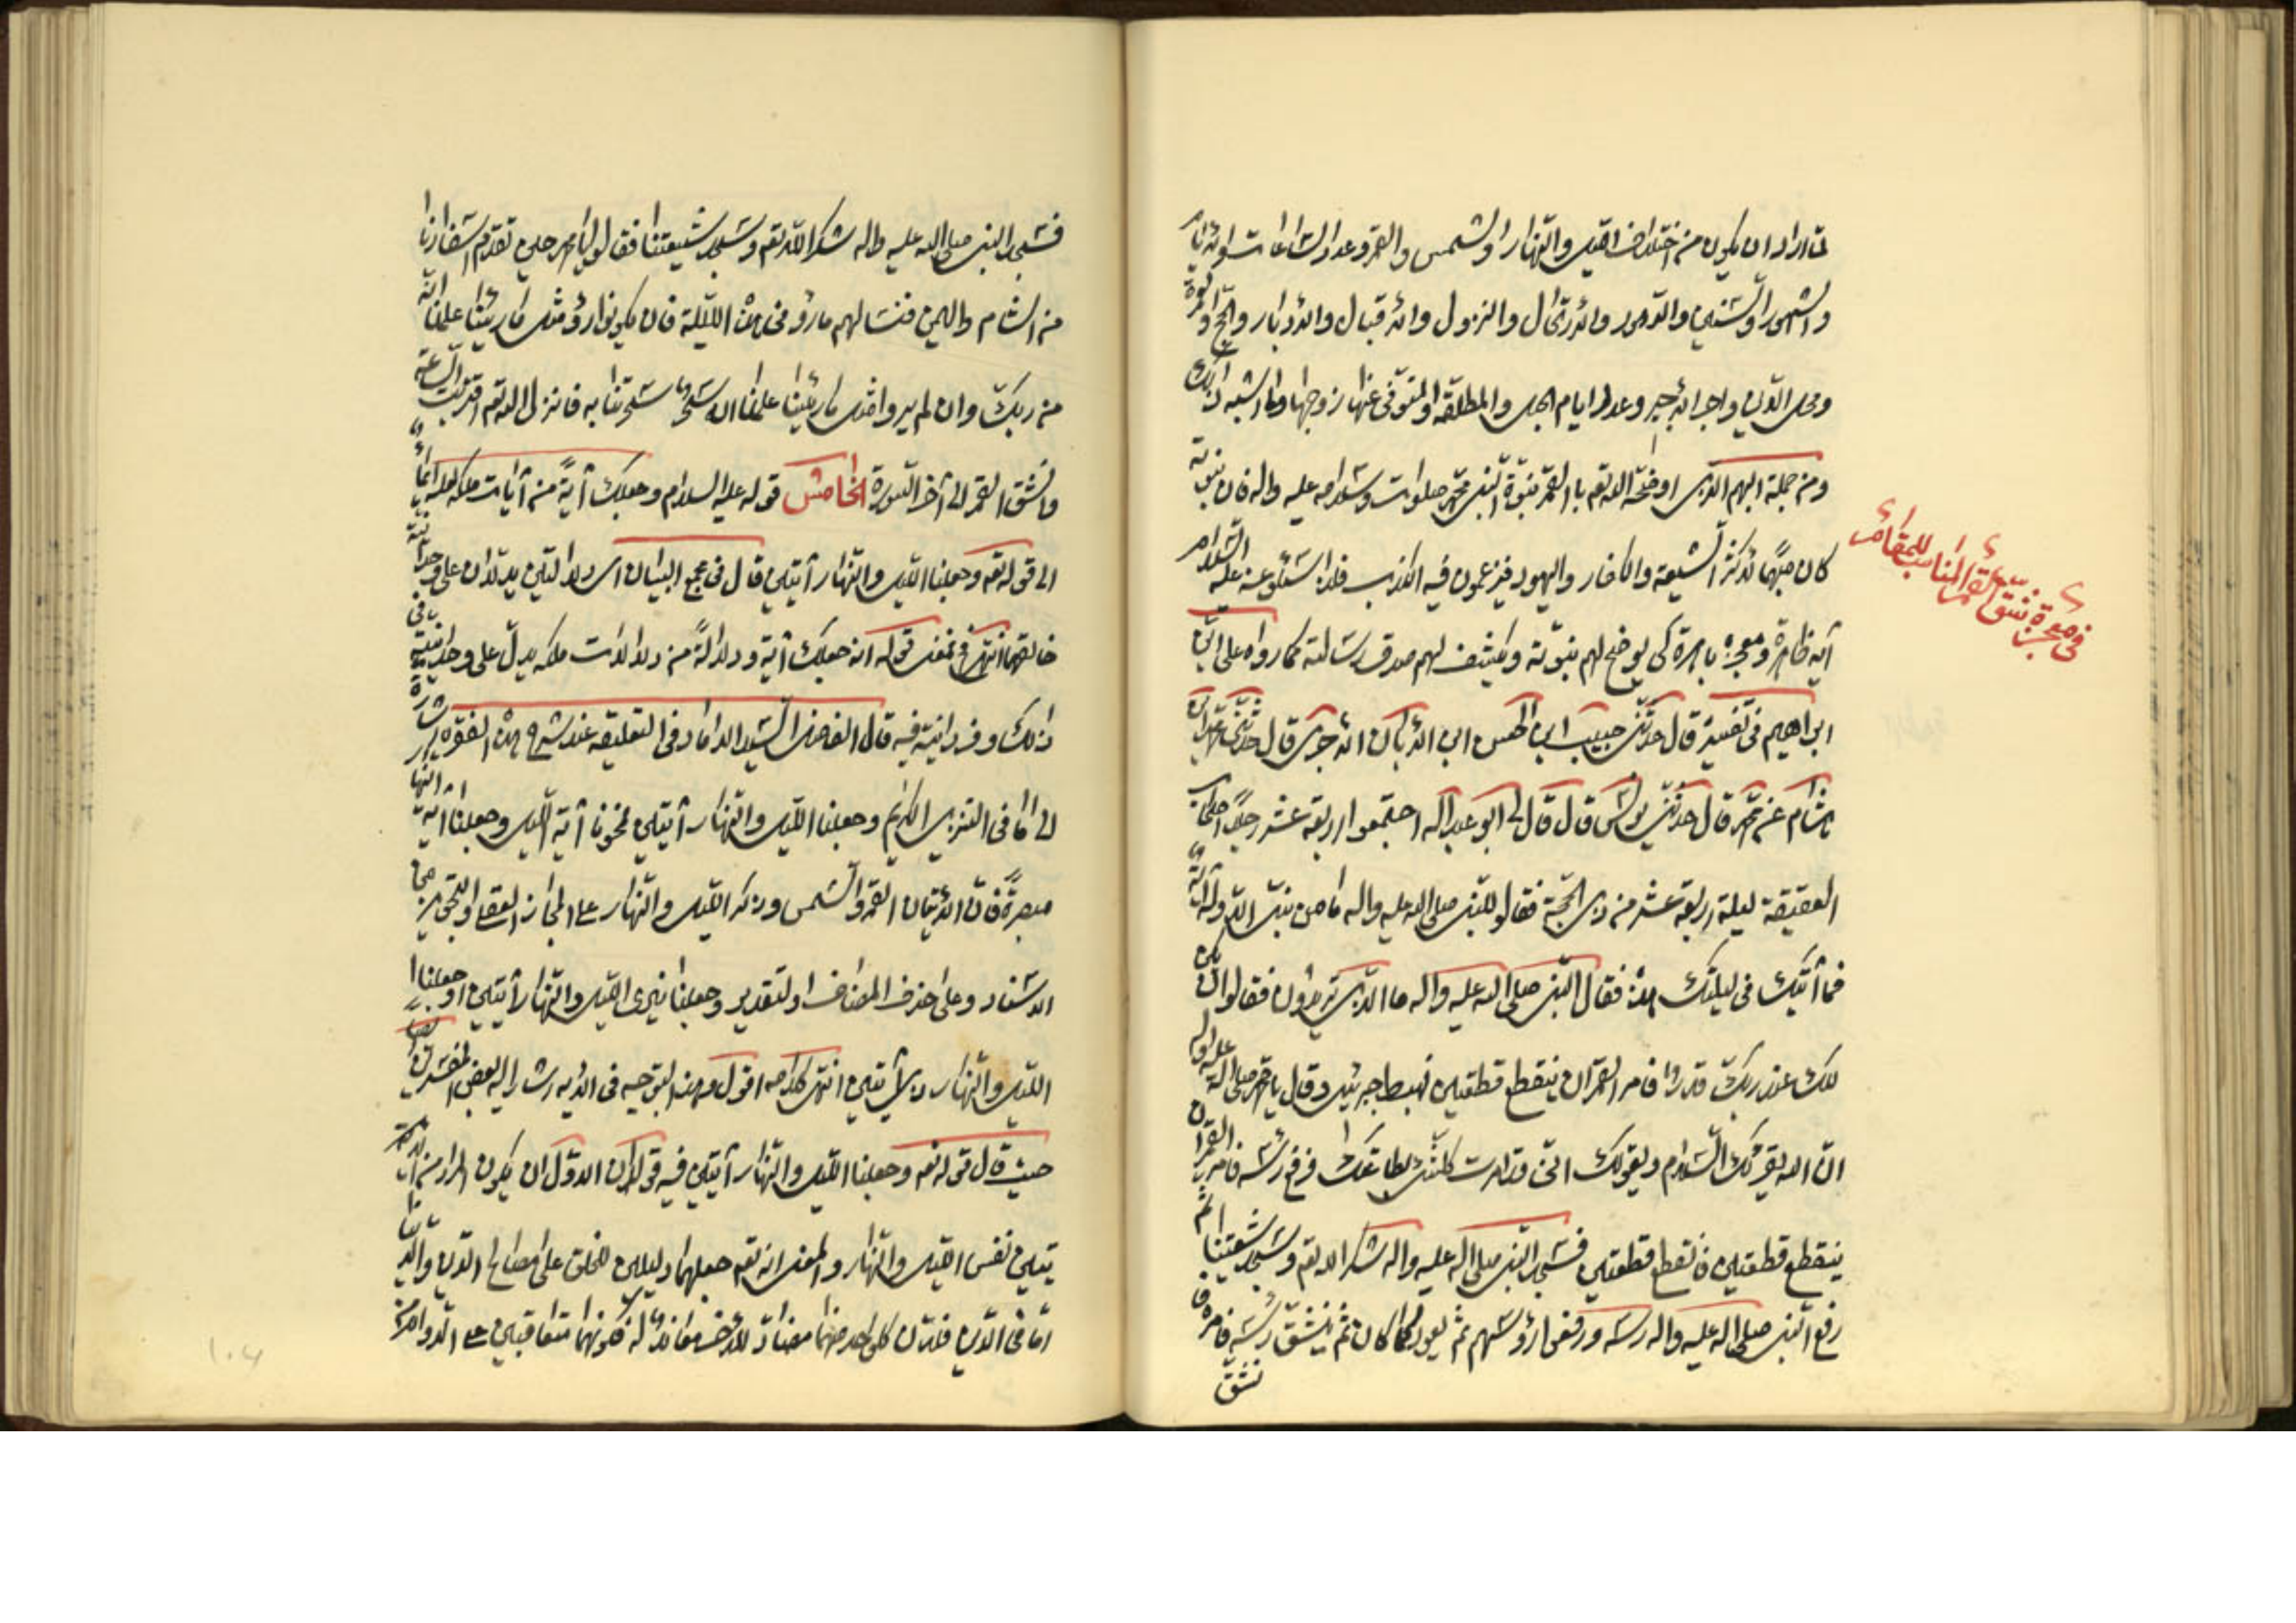 لما اراد ان يكون من اختلاف الليل والنهار والشمس والقمر وعدد الساعات والايام
والشهور والسنين والدهور والارتحال والنزول والاقبال والادبار والحج والعمرة
ومحل الدين واجر الاجير وعدد ايام الحبل والمطلقة والمتوفى عنها زوجها وما اشبه ذلك
ومن جملة البهم الذى اوضحه الله تعم بالقمر نبوة النبى محمد صلوات وسلامه عليه واله فان نبوته
كان مبهما لاكثر الشيعة والكفار واليهود فيزعمون فيه الكذب فلذا سئلو عنه عليه السلام
آية ظاهرة ومعجزه باهرة كى يوضح لهم نبوته ويكشف لهم صدق رسالته كما رواه على ابن
ابراهيم فى تفسيره قال حدثنى حبيب ابن الحسن ابن الابان الاجرى قال حدثنى محمد ابن
هشام عن محمد قال حدثنى يونس قال قال لى ابو عبد الله اجتمعوا اربعة عشر رجلا اصحاب
العقيقة ليلة اربعة عشر من ذى الحجة فقالو للنبى صلى الله عليه واله ما من نبى الا وله آية
فما آيتك فى ليلتك هذه فقال النبى صلى الله عليه واله ما الذى تريدون فقالوا ان يكن
لك عند ربك قدرا فامر القمر ان ينقطع قطعتين فهبط جبرئيل وقال يا محمد صلى الله عليه واله
ان الله يقرئك السلام ويقولك انى قد امرت كلشئ بطاعتك فرفع رسه فامر القمر ان
ينقطع قطعتين فانقطع قطعتين فسجد النبى صلى الله عليه واله شكرا لله تعم وسجد شيعتنا ثم
رفع النبى صلى الله عليه واله رسه ورفعوا رؤسهم ثم يعود كما كان ثم ينشق رسه فامره فا
نشق
فى معجزة شق القمر المناسب للمقام
فسجد النبى صلى الله عليه واله شكرا لله تعم وسجد شيعتنا فقالو يا محمد حين تقدم اسفارنا
من الشام واليمن فنسالهم ما رؤ فى هذه الليلة فان يكونوا رؤ مثل ما رئينا علمنا انه
من ربك وان لم يروا مثل ما رئينا علمنا انه سحر سحرتنا به فانزل الله تعم اقتربت الساعة
وانشق القمر الى آخر السورة الخامس قوله عليه السلام وجعلك آية من آيات ملكه لعله ايماء
الى قوله تعم وجعلنا الليل والنهار آيتين قال فى مجمع البيان اى دلالتين يدلان على وحدانية
خالقهما انتهى فمعنى قوله انه جعلك آية ودلالة من دلالات ملكه يدل على وحدانيته فى
ذلك وفردانيته فيه قال الفاضل السيد الداماد فى التعليقه عند شرح هذه الفقره اشارة
الى ما فى التنزيل الكريم وجعلنا الليل والنهار آيتين فمحونا آية الليل وجعلنا آية النها
مبصرة فان الايتان القمر والشمس وذكر الليل والنهار على المجاز العقلى والتجوز فى
الاسناد وعلى حذف المضاف او التقدير وجعلنا نيرى الليل والنهار آيتين او جعلنا
الليل والنهار ذى آيتين انتهى كلامه اقول وهذا التوجيه فى الايه اشار اليه بعض المفسرين
حيث قال قوله تعم وجعلنا الليل والنهار آيتين فيه قولان الاول ان يكون المراد من الا
يتين نفس الليل والنهار والمعنى انه تعم جعلهما دليلين للخلق على مصالح الدين والدنيا
اما فى الدين فلان كل واحد منهما مضاد للاخر معاند له فكونهما متعاقبين على الدوام من
١٠٤